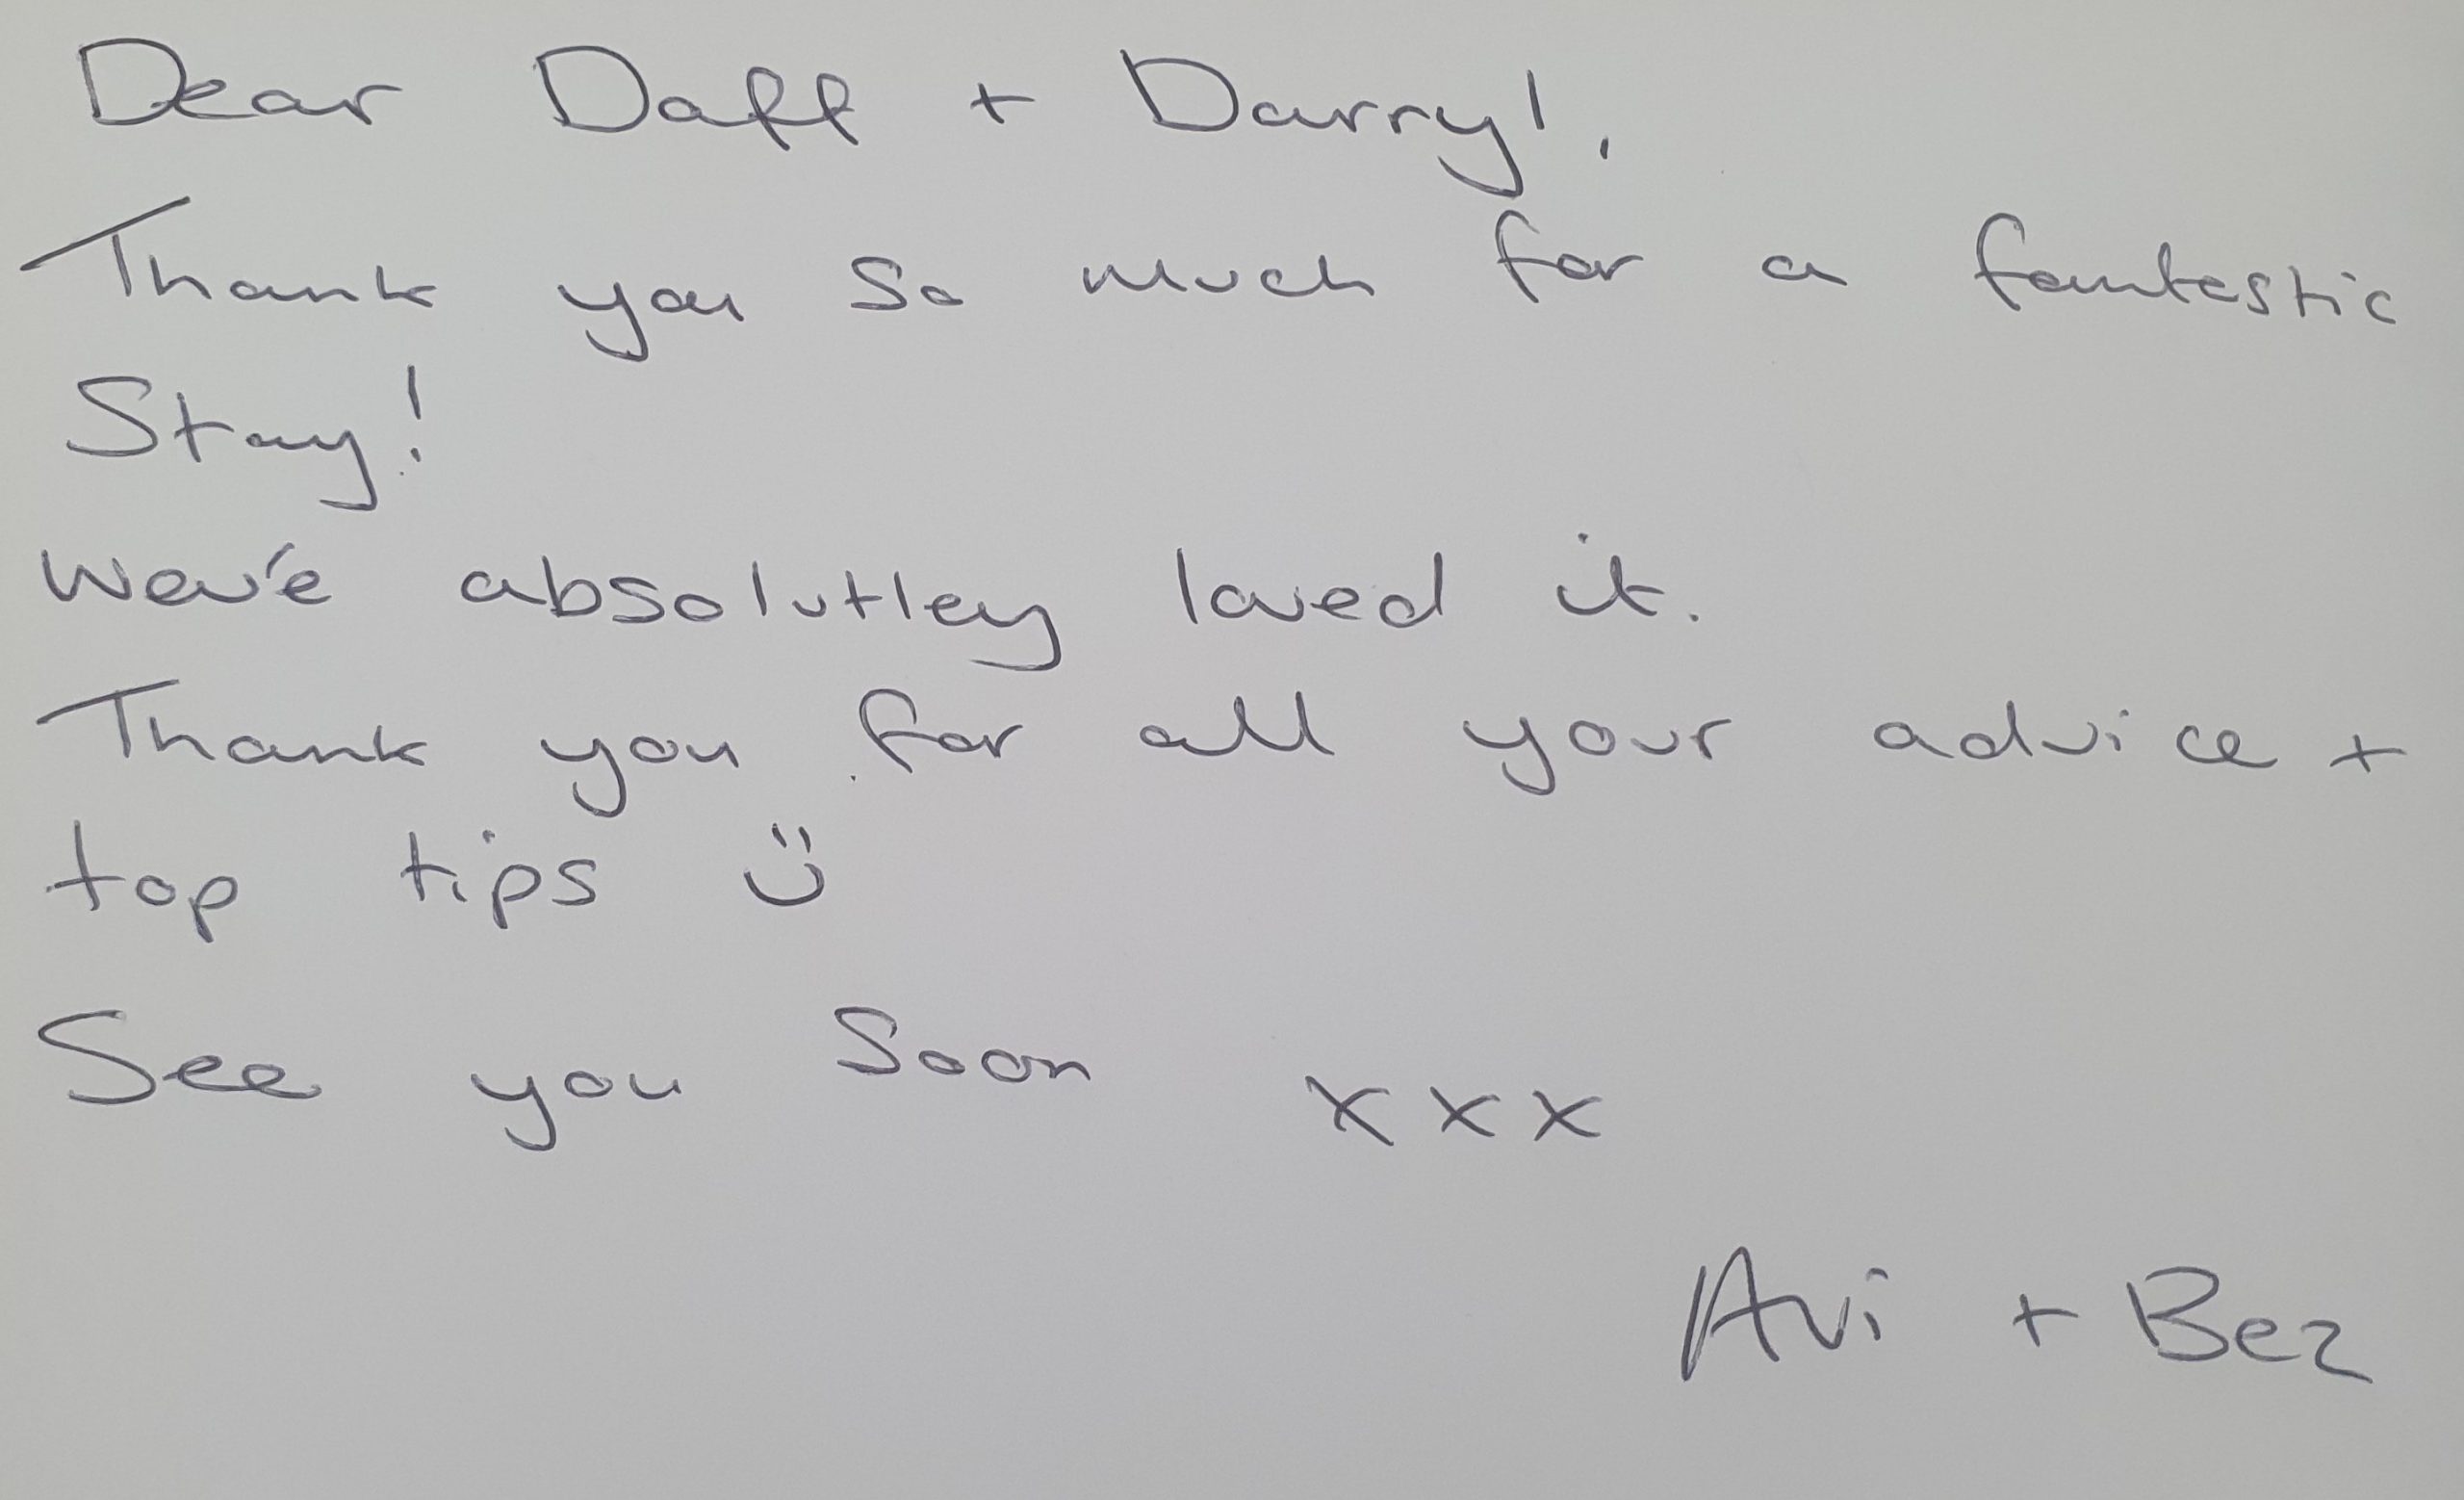 Dear Daff + Darryl,
Thank you so much for a fantastic
Stay!
Wev'e absolutley loved it.
Thank you for all your advice +
top tips ü
See you Soon xxx
Avi + Bez